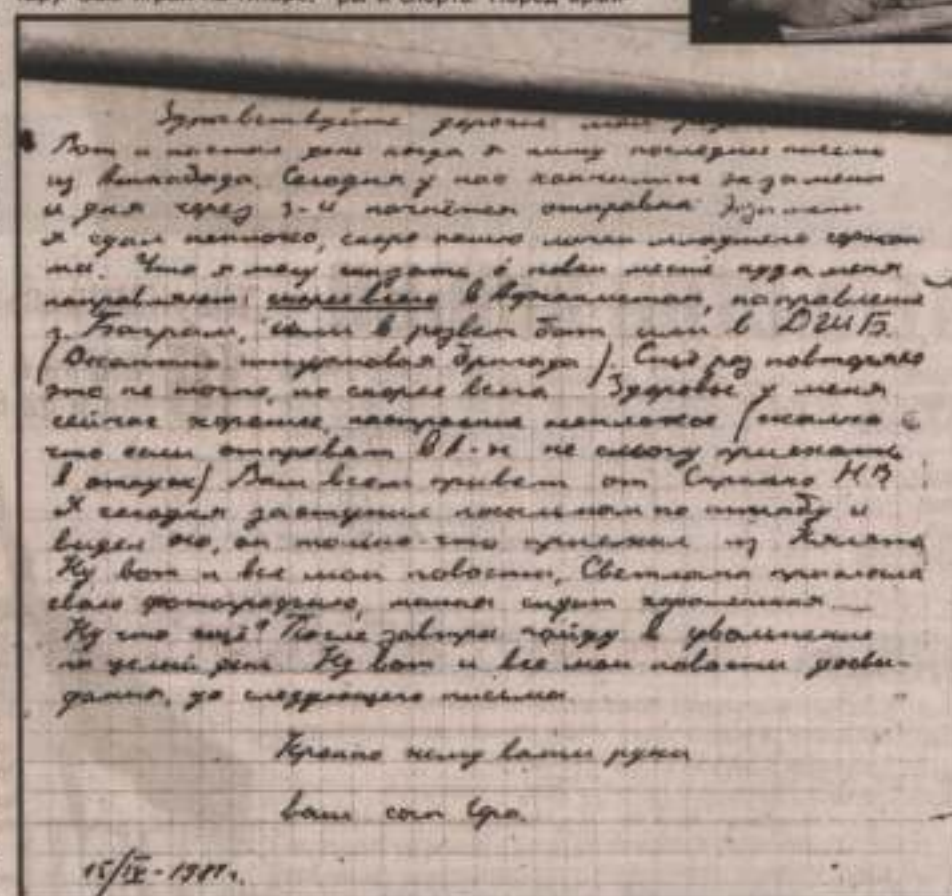 Здравствуйте дорогие мои
Вот и настал день когда я пишу последнее письмо
из Ашхабада. Сегодня у нас кончились экзамены
и дня через 3-4 начнётся отправка Экзамены
я сдал неплохо, скоро пошлю младшего
Что я могу сказать о новом месте куда меня
направляют: скорее всего в Афганистан, направление
г. Баграм, или в развед бат или в ДШБ.
(Десантно штурмовая бригада). Ещё раз повторяю
это не точно, но скорее всего. Здоровье у меня
сейчас хорошее, настроение неплохое (жалко
что если отправят в А-н не смогу приехать
в отпуск) Вам всем привет от НВ
Я сегодня заступил посыльным по штабу и
видел его, он только что приехал из
Ну вот и все мои новости, Светлана прислала
свою фотографию, хорошенькая
Ну что ещё? После завтра пойду в увольнение
на целый день Ну вот и все мои новости досви-
дания, до следующего письма.
Крепко жму ваши руки
ваш сын
15/IV-198